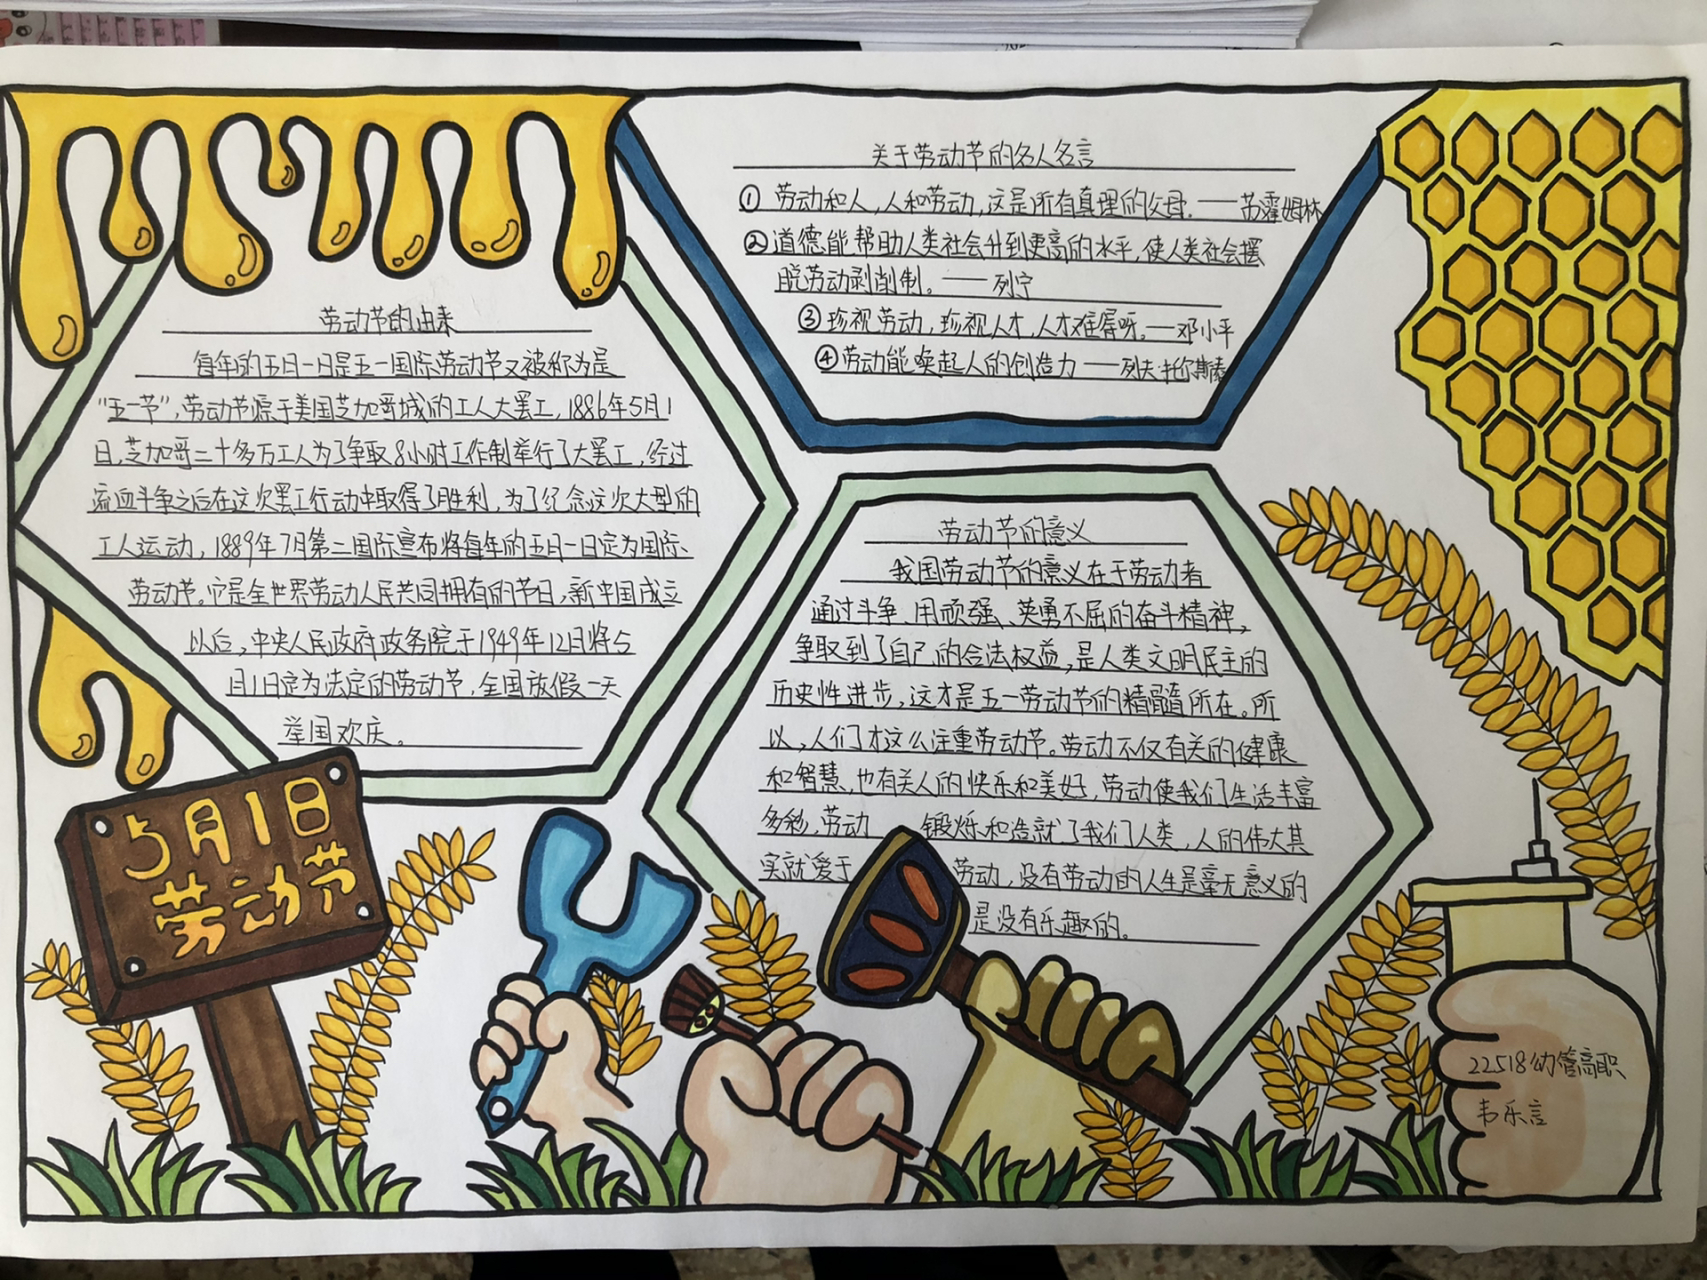 劳动节的由来
每年的五月一日是五一国际劳动节又被称为是
“五一节”,劳动节源于美国芝加哥城的工人大罢工,1886年5月1
日,芝加哥二十多万工人为了争取8小时工作制举行了大罢工,经过
流血斗争之后在这次罢工行动中取得了胜利,为了纪念这次大型的
工人运动,1889年7月第二国际宣布将每年的五月一日定为国际
劳动节。它是全世界劳动人民共同拥有的节日,新中国成立
以后,中央人民政府政务院于1949年12月将5
月1日定为法定的劳动节,全国放假一天
举国欢庆。
关于劳动节的名人名言
① 劳动和人,人和劳动,这是所有真理的父母.——苏霍姆林
②道德能帮助人类社会升到更高的水平,使人类社会摆
脱劳动剥削制。——列宁
③珍视劳动,珍视人才,人才难得呀。—邓小平
④劳动能唤起人的创造力——列夫托尔斯泰
劳动节的意义
我国劳动节的意义在于劳动者
通过斗争、用顽强、英勇不屈的奋斗精神,
争取到了自己的合法权益,是人类文明民主的
历史性进步,这才是五一劳动节的精髓所在。所
以,人们才这么注重劳动节。劳动不仅有关的健康
和智慧,也有关人的快乐和美好,劳动使我们生活丰富
多彩,劳动 锻炼和造就了我们人类,人的伟大其
实就爱于 劳动,没有劳动的人生是毫无意义的
是没有乐趣的。
5月1日
劳动节
22518幼管高职
韦乐言